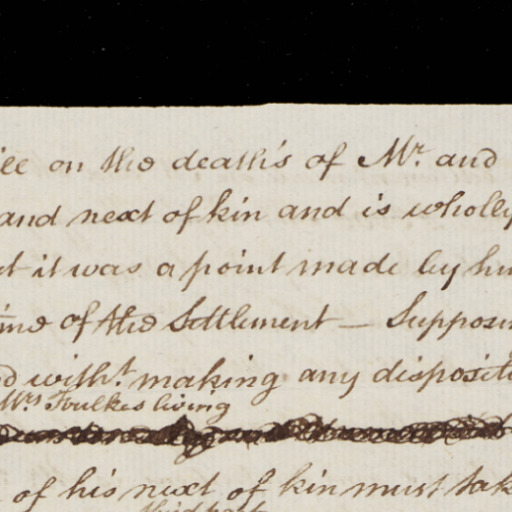 on the death's of Mr. and
and next of kin and is wholly
it was a point made by
of the Settlement — Suppos
with.t making any disposit
Mrs Foulkes living
of his next of kin must tak
third part